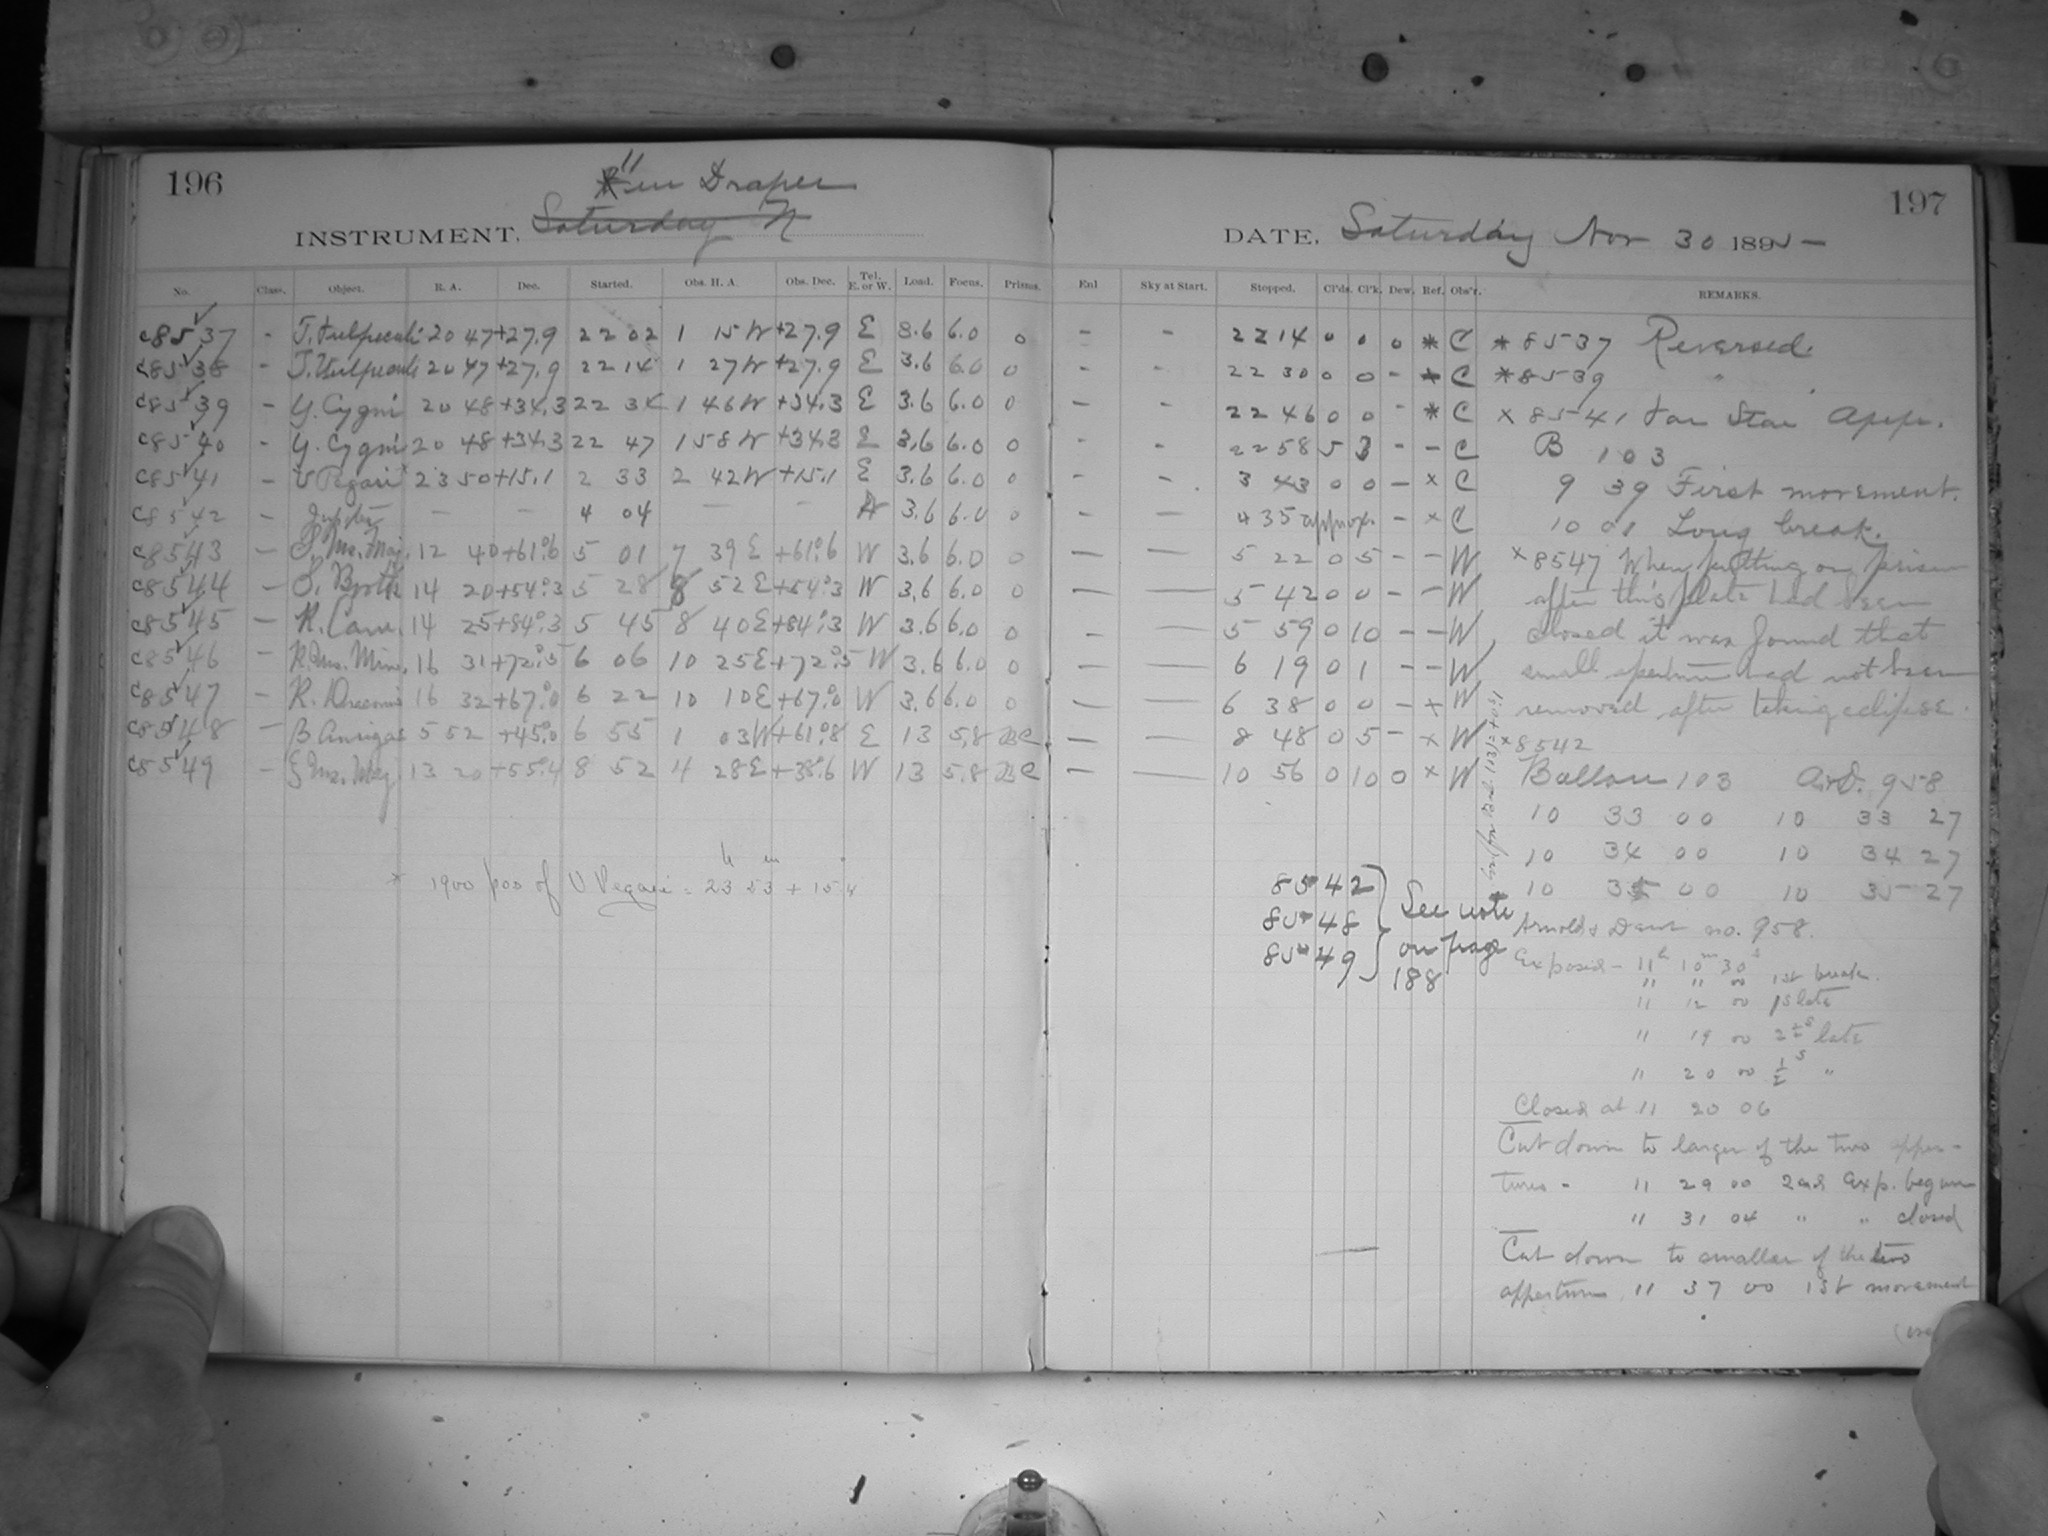 196
11 in Draper
INSTRUMENT, Saturday N
No. Class. Object. R. A. Dec. Started. Obs. H. A. Obs. Dec. Tel. E. or W. Load. Focus. Prisms.
c8537 - T. Vulpecul 20 47 +27.9 22 02 1 15 W +27.9 E 3.6 6.0 0
c8538 - T. Vulpecul 20 47 +27.9 22 14 1 27 W +27.9 E 3.6 6.0 0
c8539 - Y. Cygni 20 48 +34.3 22 34 1 46 W +34.3 E 3.6 6.0 0
c8540 - Y. Cygni 20 48 +34.3 22 47 1 58 W +34.3 E 3.6 6.0 0
c8541 - V Pegasi 23 50 +15.1 2 33 2 42 W +15.1 E 3.6 6.0 0
c8542 - Jupiter — — 4 04 — — 3.6 6.0 0
c8543 - S. Urs. Maj. 12 40 +61°.6 5 01 7 39 E +61°.6 W 3.6 6.0 0
c8544 - S. Bootis 14 20 +54°.3 5 28 8 52 E +54°.3 W 3.6 6.0 0
c8545 - R. Cam. 14 25 +84°.3 5 45 8 40 E +84°.3 W 3.6 6.0 0
c8546 - R Urs. Min. 16 31 +72°.5 6 06 10 25 E +72°.5 W 3.6 6.0 0
c8547 - R. Draconis 16 32 +67°.0 6 22 10 10 E +67°.0 W 3.6 6.0 0
c8548 - B Aurigae 5 52 +45°.0 6 55 1 03 W +61°.8 E 13 5.8 BC
c8549 - ζ Urs. Maj. 13 20 +55°.4 8 52 4 28 E +38°.6 W 13 5.8 BC
* 1900 pos of V Pegasi = 23 h 53 m + 15
197
DATE, Saturday Nov 30 1895-
Enl Sky at Start. Stopped. Cl'ds. Cl'k. Dew. Ref. Obs'r. REMARKS.
- - 22 14 0 0 0 * C * 8537 Reversed.
- - 22 30 0 0 - * C * 8539 "
- - 22 46 0 0 - * C x 8541 Var Star App.
- - 22 58 5 3 - - C B 103
- - 3 43 0 0 - x C 9 39 First movement.
- — 4 35 approx. - x C 10 01 Long break.
— — 5 22 0 5 - - W x 8547 When putting on prism
— — 5 42 0 0 - - W after this plate had been
- — 5 59 0 10 - - W closed it was found that
— — 6 19 0 1 - - W small aperture had not been
— — 6 38 0 0 - x W removed after taking eclipse.
— — 8 48 0 5 - x W * 8542
— — 10 56 0 10 0 x W Ballou 103 A&D. 958
10 33 00 10 33 27
10 34 00 10 34 27
10 35 00 10 35 27
8542
8548
8549
See note
on page
188
Arnold & Dent no. 958.
Exposed - 11h 10m 30s
" " 00 1st break.
11 12 00 1s late
11 19 00 2½s late
11 20 00 ½s "
Closed at 11 20 06
Cut down to larger of the two apper-
tures - 11 29 00 2nd Exp. began
11 31 04 " " closed
Cut down to smaller of the two
apperture 11 37 00 1st movement